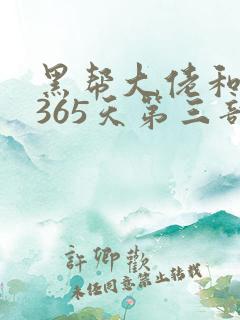 黑帮大佬和
365天第三部
許卿歡
未任同意禁止转载